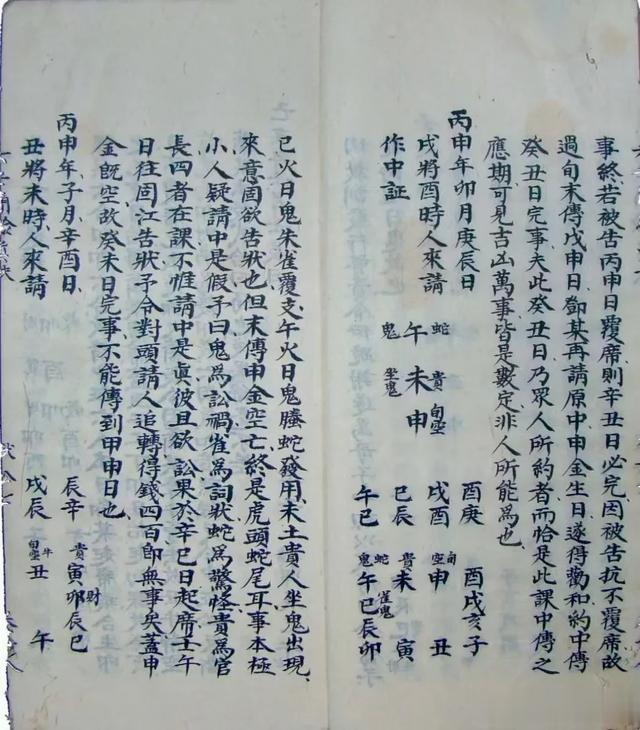 事終若被告丙申日覆席則辛丑日必完因被告抗不覆席故
過旬末傳戊申日鄧某再請原中申金生日遂得勸和約中傳
癸丑日完事夫此癸丑日乃眾人所約者而恰是此課中傳之
應期可見吉凶萬事皆是數定非人所能爲也
丙申年卯月庚辰日
戌將酉時人來請
作中証
蛇 貴 旬空
午 未 申
鬼 坐鬼
酉庚 酉戌亥子
戌酉 申 丑
旬空
巳辰 未 寅
貴
午巳 午巳辰卯
蛇鬼 雀鬼
巳火日鬼朱雀覆支午火日鬼騰蛇發用未土貴人坐鬼出現
來意固欲告狀也但末傳申金空亡終是虎頭蛇尾耳事本極
小人疑請中是假子曰鬼爲訟禍雀爲詞狀蛇爲驚怪貴爲官
長四者在課不惟請中是眞彼且欲訟果於辛巳日起席壬午
日往固江告狀予令對頭請人追轉得錢四百卽無事矣蓋申
金旣空故癸未日完事不能傳到甲申日也
丙申年子月辛酉日
丑將未時人來請
辰辛 寅卯辰巳
貴 財
戌辰 丑 午
旬空 牛